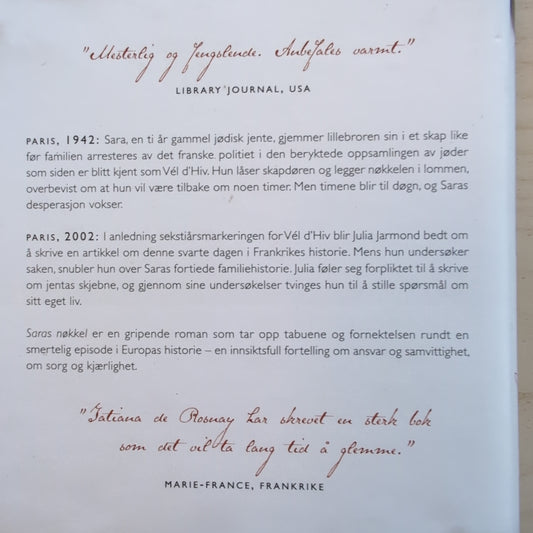 "Mesterlig og fengslende. Anbefales varmt."
LIBRARY JOURNAL, USA
PARIS, 1942: Sara, en ti år gammel jødisk jente, gjemmer lillebroren sin i et skap like
før familien arresteres av det franske politiet i den beryktede oppsamlingen av jøder
som siden er blitt kjent som Vél d'Hiv. Hun låser skapdøren og legger nøkkelen i lommen,
overbevist om at hun vil være tilbake om noen timer. Men timene blir til døgn, og Saras
desperasjon vokser.
PARIS, 2002: I anledning sekstiårsmarkeringen for Vél d'Hiv blir Julia Jarmond bedt om
å skrive en artikkel om denne svarte dagen i Frankrikes historie. Mens hun undersøker
saken, snubler hun over Saras fortiede familiehistorie. Julia føler seg forpliktet til å skrive
om jentas skjebne, og gjennom sine undersøkelser tvinges hun til å stille spørsmål om
sitt eget liv.
Saras nøkkel er en gripende roman som tar opp tabuene og fornektelsen rundt en
smertelig episode i Europas historie – en innsiktsfull fortelling om ansvar og samvittighet,
om sorg og kjærlighet.
"Tatiana de Rosnay har skrevet en sterk bok
som det vil ta lang tid å glemme."
MARIE-FRANCE, FRANKRIKE